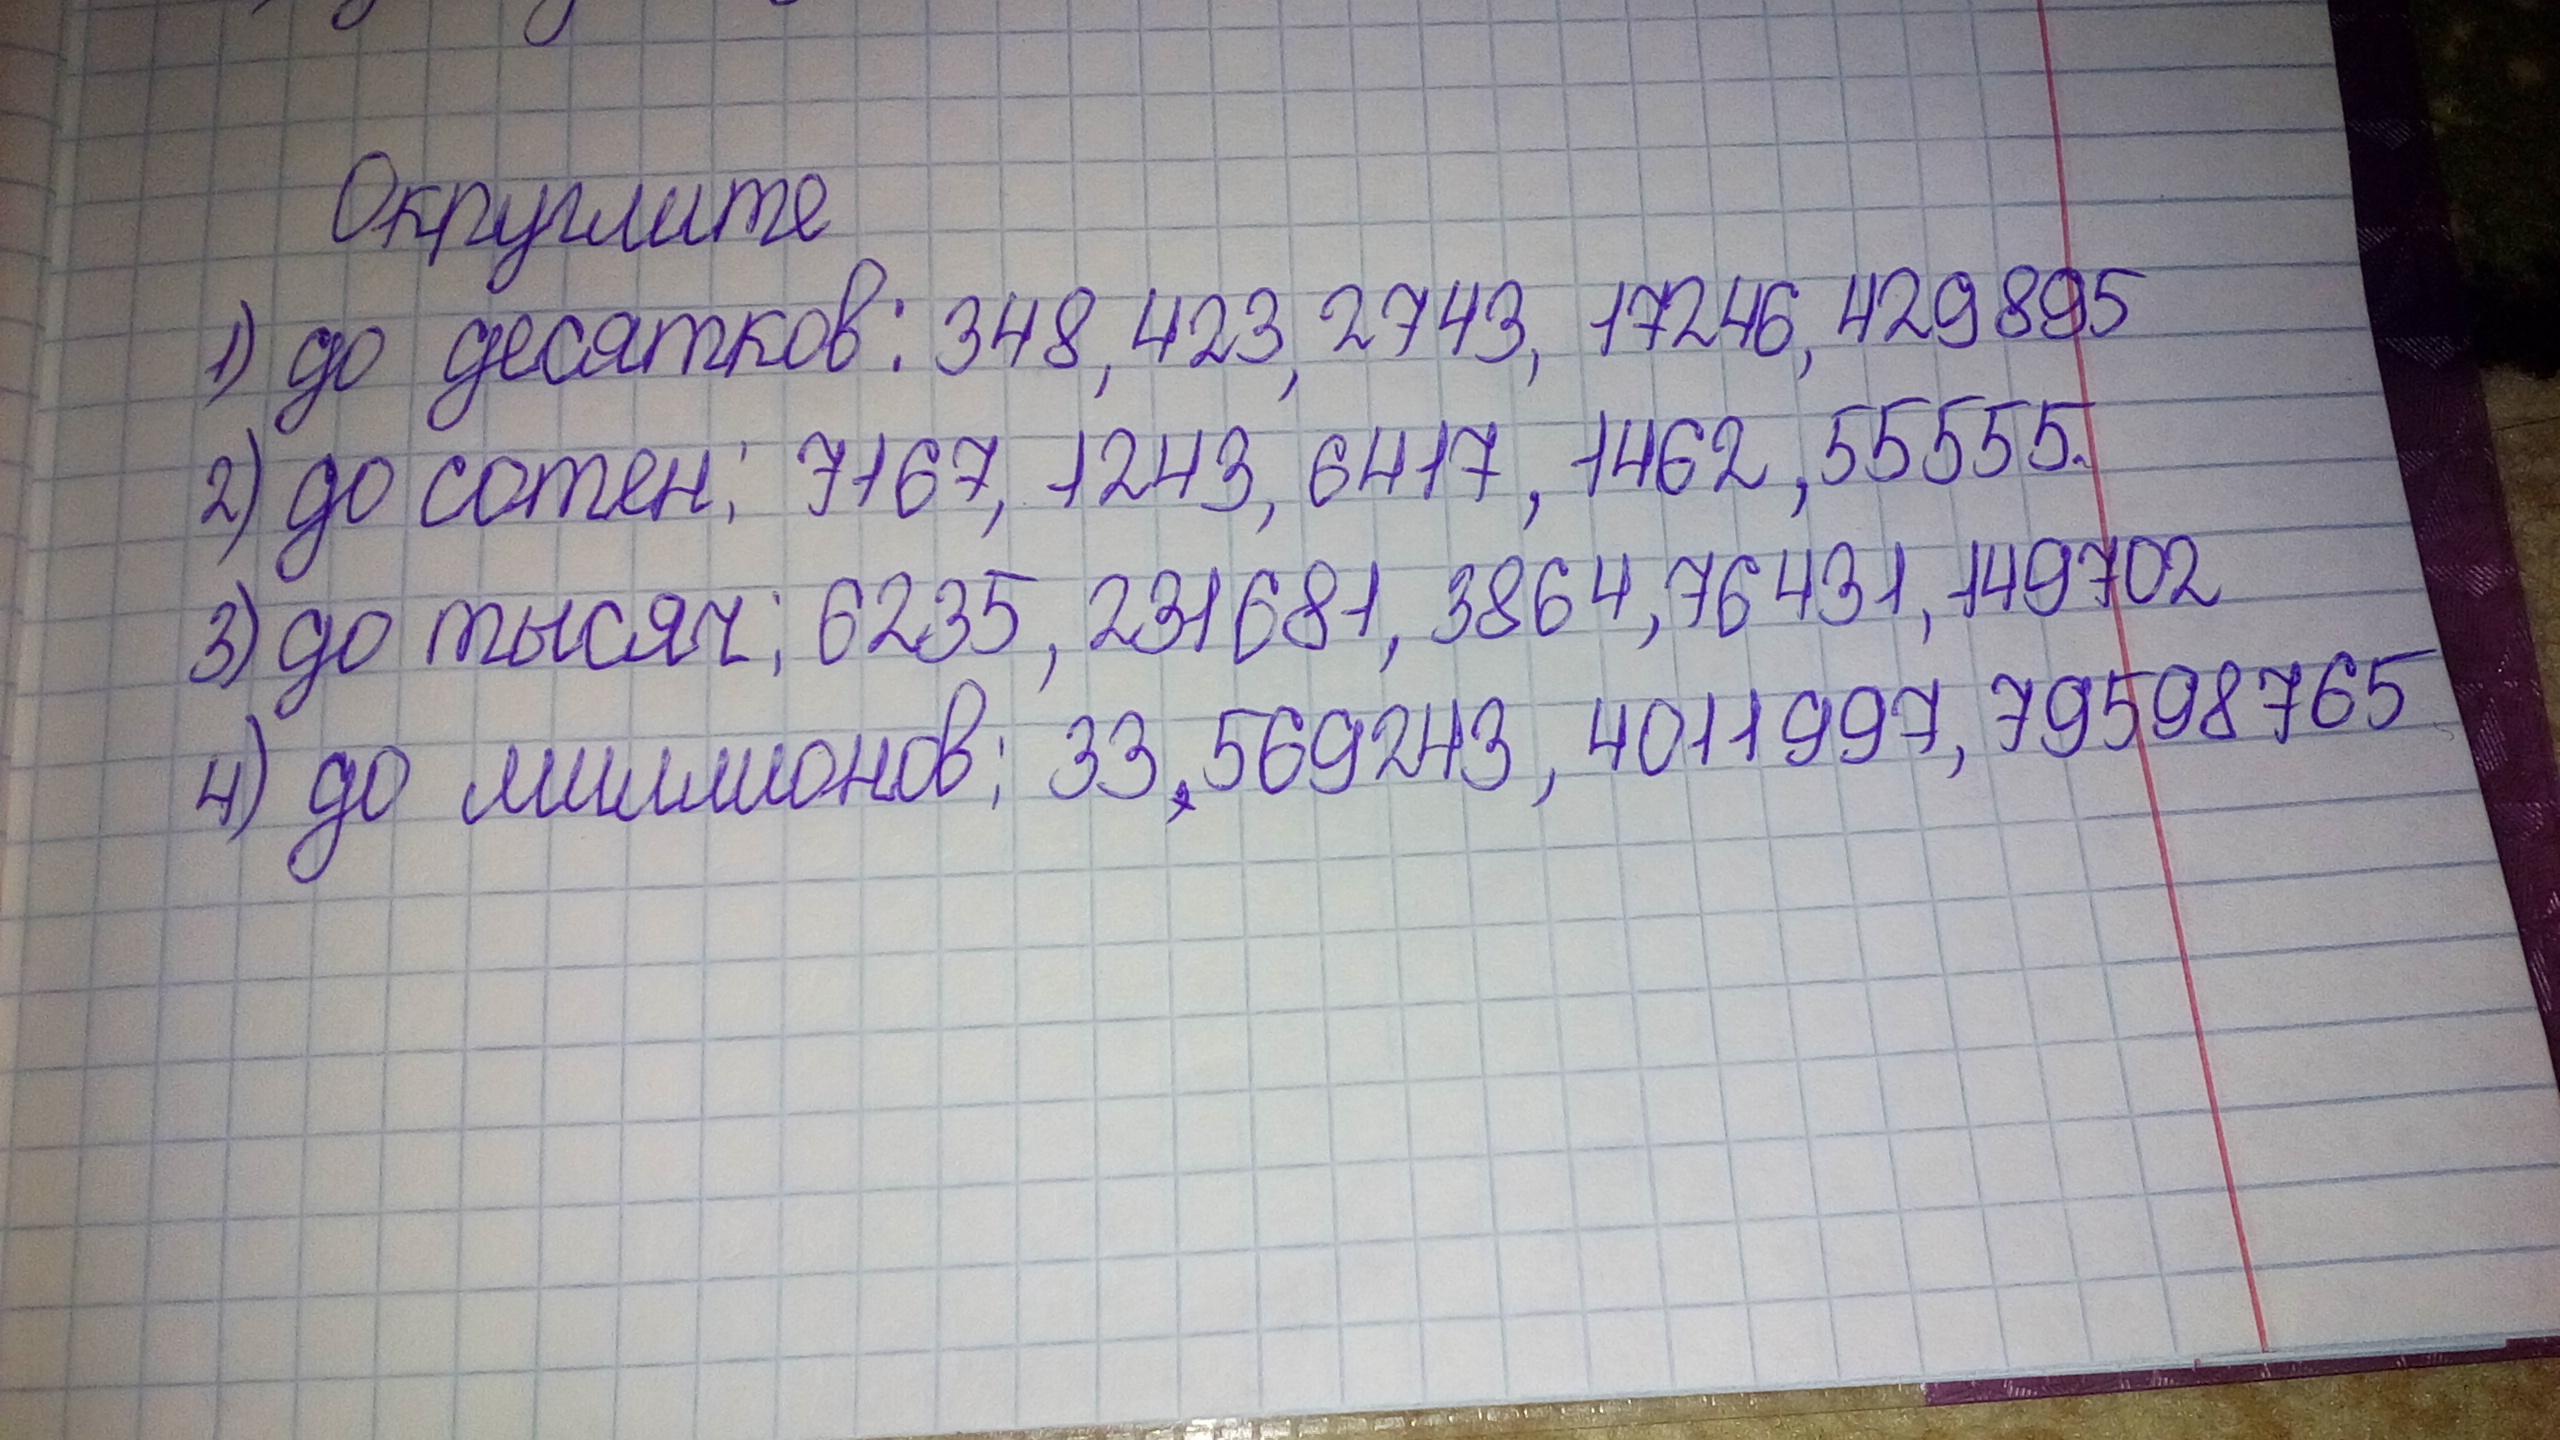 Округлите
1) до десятков: 348, 423, 2743, 17246, 429895
2) до сотен; 7167, 1243, 6417, 1462, 55555.
3) до тысяч; 6235, 231681, 3864, 76431, 149702
4) до миллионов; 33,569243, 4011997, 79598765